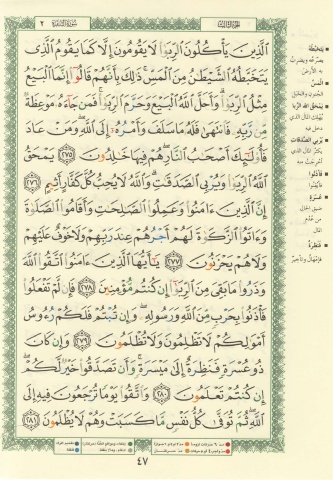 سُورَةُ البَقَرَةِ ٢
الجزء الثالث
ٱلَّذِينَ يَأۡكُلُونَ ٱلرِّبَوٰاْ لَا يَقُومُونَ إِلَّا كَمَا يَقُومُ ٱلَّذِي
يَتَخَبَّطُهُ ٱلشَّيۡطَٰنُ مِنَ ٱلۡمَسِّۚ ذَٰلِكَ بِأَنَّهُمۡ قَالُوٓاْ إِنَّمَا ٱلۡبَيۡعُ
مِثۡلُ ٱلرِّبَوٰاْۗ وَأَحَلَّ ٱللَّهُ ٱلۡبَيۡعَ وَحَرَّمَ ٱلرِّبَوٰاْۚ فَمَن جَآءَهُۥ مَوۡعِظَةٞ
مِّن رَّبِّهِۦ فَٱنتَهَىٰ فَلَهُۥ مَا سَلَفَ وَأَمۡرُهُۥٓ إِلَى ٱللَّهِۖ وَمَنۡ عَادَ
فَأُوْلَٰٓئِكَ أَصۡحَٰبُ ٱلنَّارِۖ هُمۡ فِيهَا خَٰلِدُونَ ٢٧٥ يَمۡحَقُ
ٱللَّهُ ٱلرِّبَوٰاْ وَيُرۡبِي ٱلصَّدَقَٰتِۗ وَٱللَّهُ لَا يُحِبُّ كُلَّ كَفَّارٍ أَثِيمٍ ٢٧٦
إِنَّ ٱلَّذِينَ ءَامَنُواْ وَعَمِلُواْ ٱلصَّٰلِحَٰتِ وَأَقَامُواْ ٱلصَّلَوٰةَ
وَءَاتَوُاْ ٱلزَّكَوٰةَ لَهُمۡ أَجۡرُهُمۡ عِندَ رَبِّهِمۡ وَلَا خَوۡفٌ عَلَيۡهِمۡ
وَلَا هُمۡ يَحۡزَنُونَ ٢٧٧ يَٰٓأَيُّهَا ٱلَّذِينَ ءَامَنُواْ ٱتَّقُواْ ٱللَّهَ
وَذَرُواْ مَا بَقِيَ مِنَ ٱلرِّبَوٰٓاْ إِن كُنتُم مُّؤۡمِنِينَ ٢٧٨ فَإِن لَّمۡ تَفۡعَلُواْ
فَأۡذَنُواْ بِحَرۡبٖ مِّنَ ٱللَّهِ وَرَسُولِهِۦۖ وَإِن تُبۡتُمۡ فَلَكُمۡ رُءُوسُ
أَمۡوَٰلِكُمۡ لَا تَظۡلِمُونَ وَلَا تُظۡلَمُونَ ٢٧٩ وَإِن كَانَ
ذُو عُسۡرَةٖ فَنَظِرَةٌ إِلَىٰ مَيۡسَرَةٖۚ وَأَن تَصَدَّقُواْ خَيۡرٞ لَّكُمۡ
إِن كُنتُمۡ تَعۡلَمُونَ ٢٨٠ وَٱتَّقُواْ يَوۡمٗا تُرۡجَعُونَ فِيهِ إِلَى
ٱللَّهِۖ ثُمَّ تُوَفَّىٰ كُلُّ نَفۡسٖ مَّا كَسَبَتۡ وَهُمۡ لَا يُظۡلَمُونَ ٢٨١
يَتَخَبَّطُهُ
يصرعه ويضرب
به الأرض
المس
الجنون والخبل
يمحق الله الربا
يهلك المال الذي
دخل فيه
يربي الصدقات
يكثر المال الذي
أخرجت منه
فأذنوا
فأيقنوا
عسرة
ضيق الحال
من عدم
المال
فنظرة
فإمهال وتأخير
٤٧